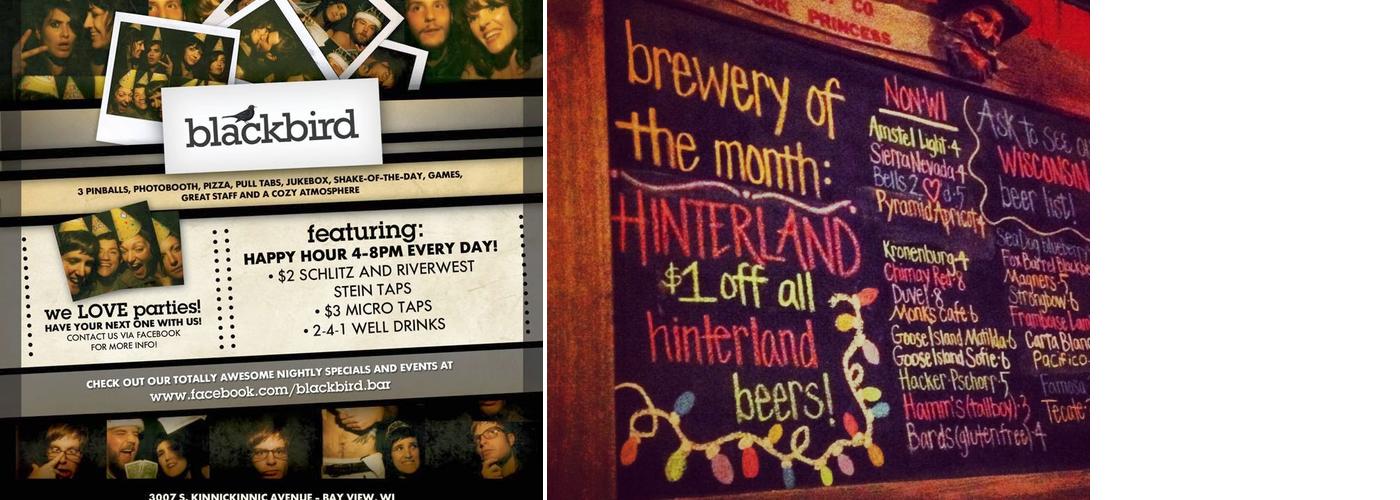 blackbird
3 PINBALLS, PHOTOBOOTH, PIZZA, PULL TABS, JUKEBOX, SHAKE-OF-THE-DAY, GAMES,
GREAT STAFF AND A COZY ATMOSPHERE
we LOVE parties!
HAVE YOUR NEXT ONE WITH US!
CONTACT US VIA FACEBOOK
FOR MORE INFO!
featuring:
HAPPY HOUR 4-8PM EVERY DAY!
• $2 SCHLITZ AND RIVERWEST
STEIN TAPS
• $3 MICRO TAPS
• 2-4-1 WELL DRINKS
CHECK OUT OUR TOTALLY AWESOME NIGHTLY SPECIALS AND EVENTS AT
www.facebook.com/blackbird.bar
3007 S. KINNICKINNIC AVENUE - BAY VIEW, WI
CO
PRINCESS
brewery of
the month:
HINTERLAND
$1 off all
hinterland
beers!
NON-WI
Amstel Light-4
Sierra Nevada-4
Bells 2 ♡d-5
Pyramid Apricot-4
Kronenburg-4
Chimay Red-8
Duvel-8
Monks Café 6
Goose Island Matilda-6
Goose Island Sofie-6
Hacker Pschorr 5
Hamm's (tallboy)-3
Bards (gluten free)-4
Ask to see
WISCONSIN
beer list!
Sea Dog Blueberry
Fox Barrel
Magners-5
Strongbow-6
Framboise
Carta
Pacifico-
Famosa
Tecate-